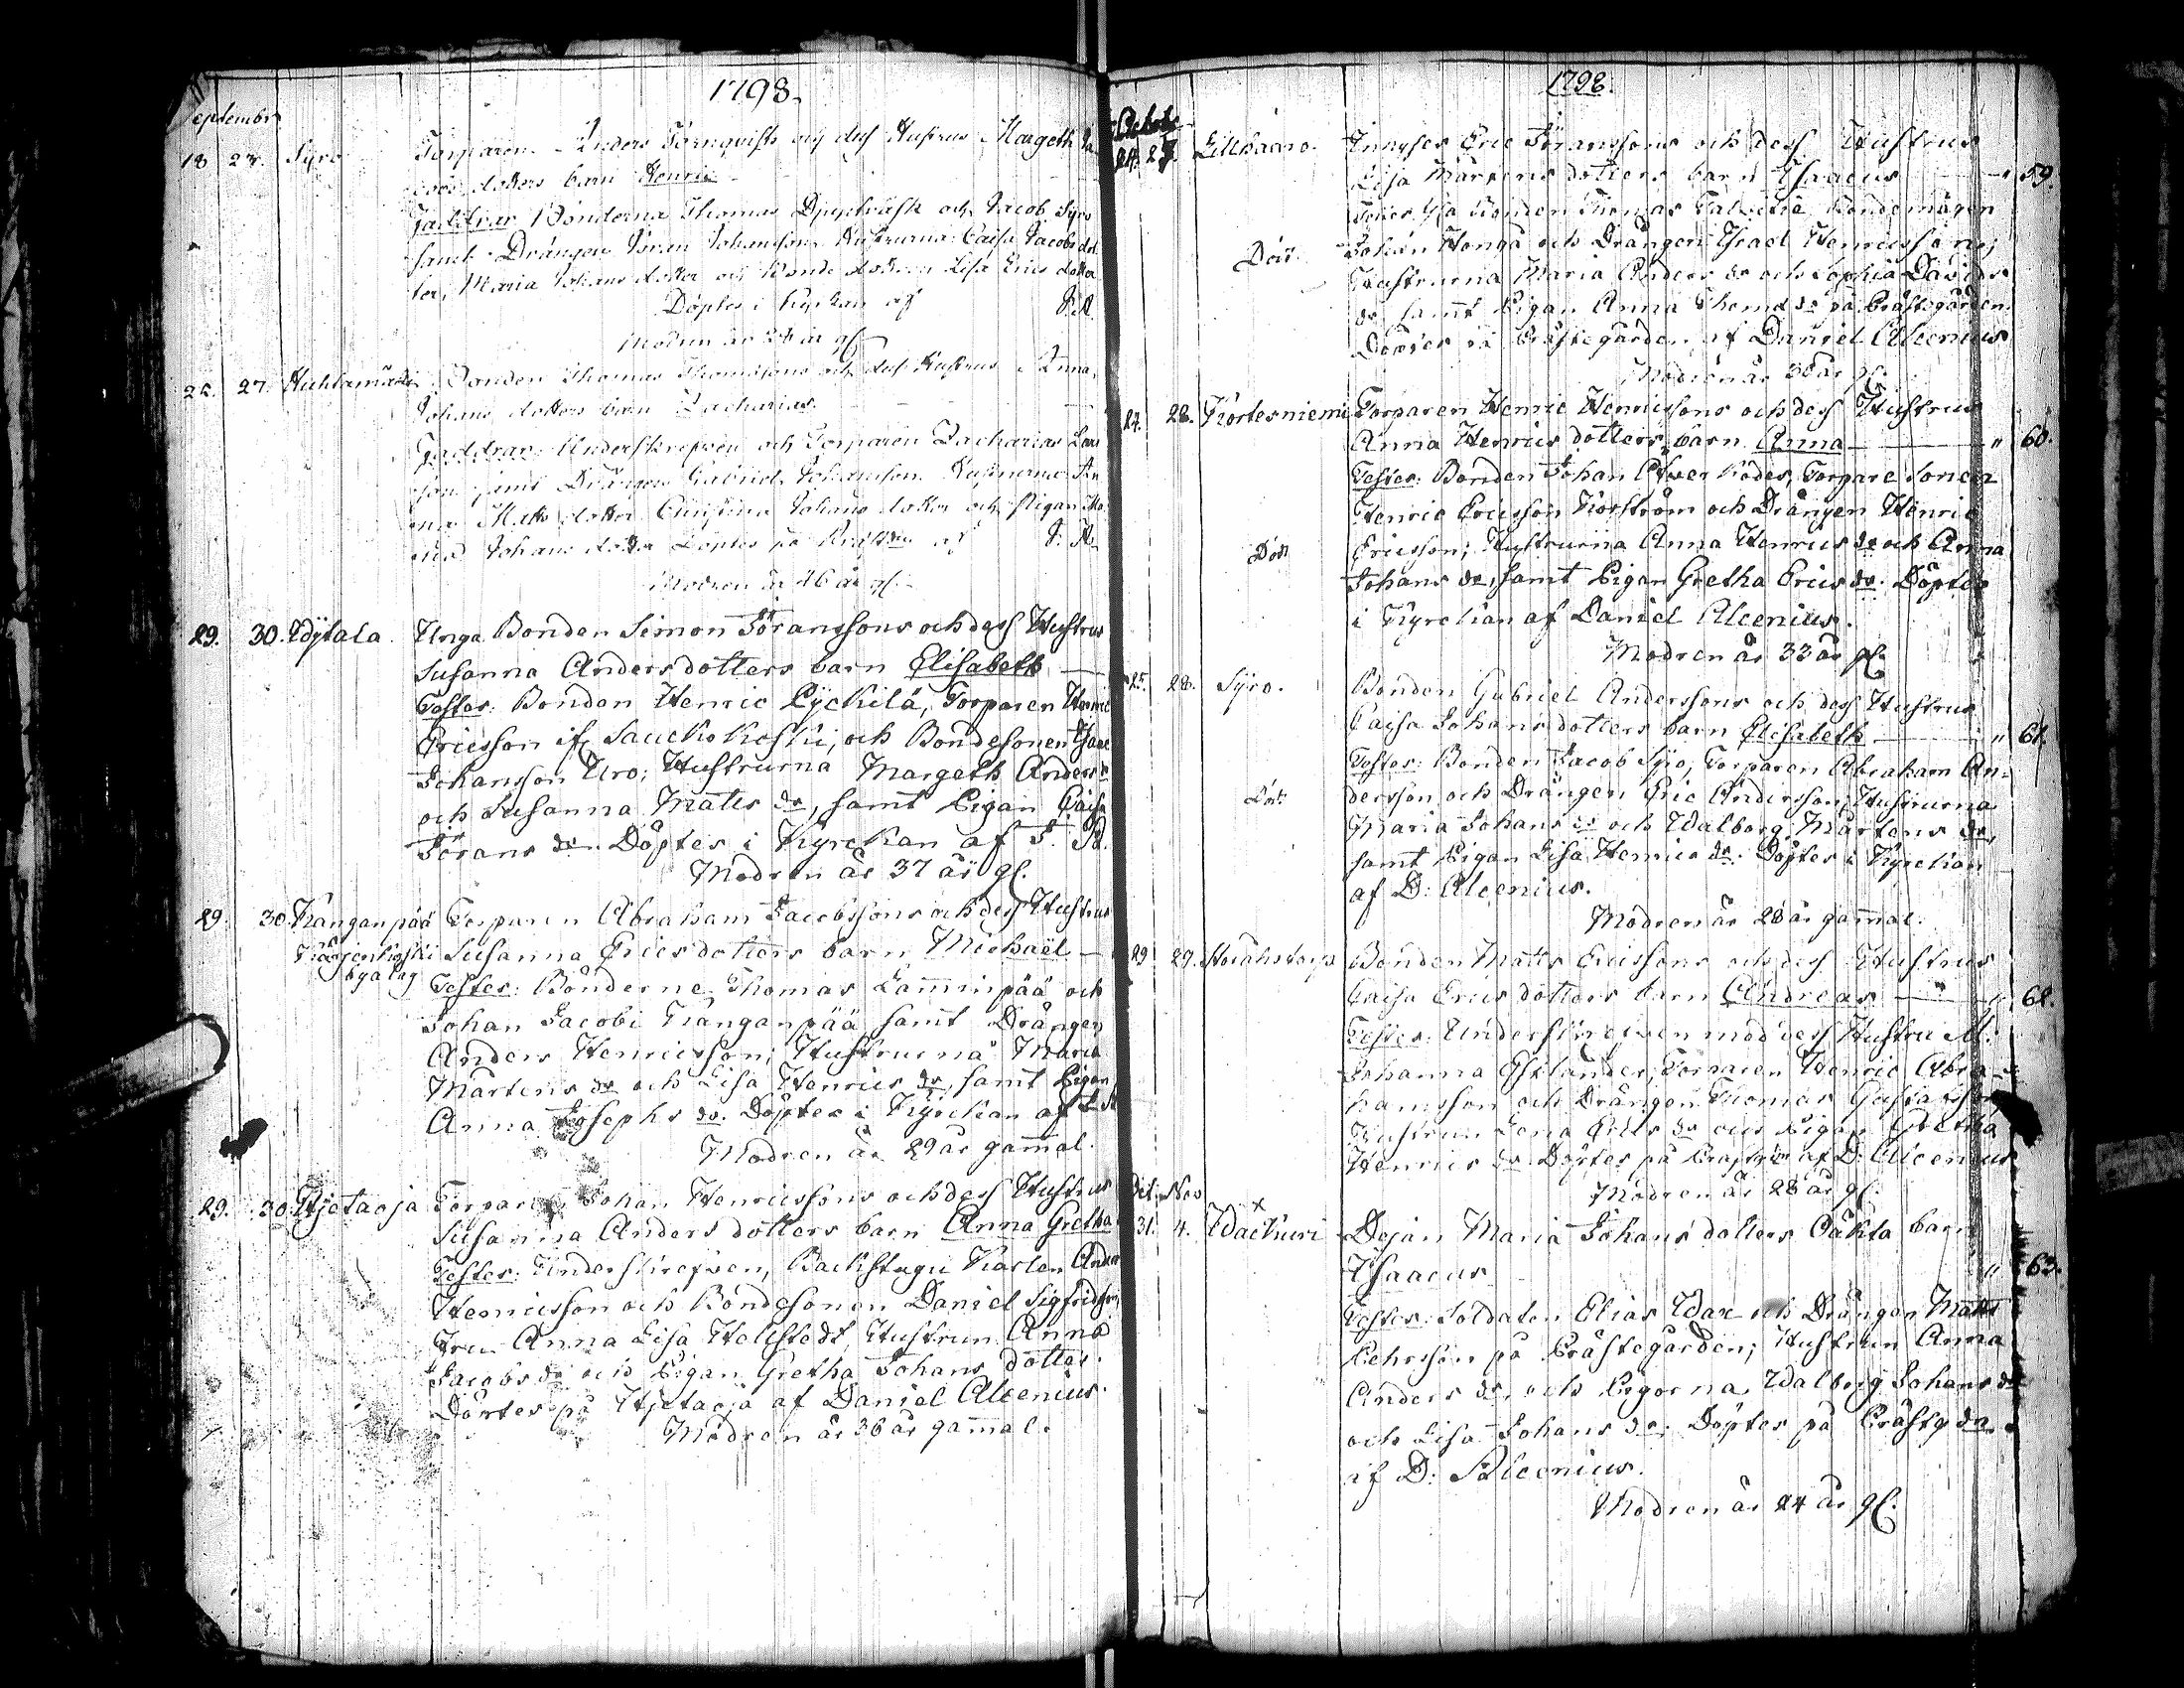 1798.
September
18 23. Syro Torparen Anders Törnqvists och dess Hustrus Margeth Ja-
cobs dotters barn Henric
Faddrar Bönderna Thomas Djupträsk och Jacob Syro
samt Drängen Johansson Hustrurna Caisa Jacobs dot-
ter, Maria Johans dotter och Bonde dottren Lisa Erics dotter
Döptes i Kyrkan af J. R.
Modren är år gl
27. Huhtamäki Bonden Thomas Thomassons och dess Hustrus Anna
Johans dotters barn Zacharias.
Faddrar Underskrefven och Torparen Zacharias
son samt Drängen Gabriel Johansson Hustrurna An
na Matts dotter Christina Johans dotter och Pigan
Johans dotter Döptes på af J. R.
Modren är 46 år gl.
29. 30. Wytala. Unga Bonden Simon Göranssons och dess Hustrus
Susanna Anders dotters barn Elisabeth
Testes: Bonden Henric Pyckilä, Torparen Henric
Ericsson if Sauckokoski, och Bondesonen Isaac
Johansson Uro; Hustrurna Margeth Anders dr
och Susanna Matts dr, samt Pigan Caisa
Görans dr. Döptes i Kyrckan af J. R.
Modren är 37 år gl.
29. 30. Kanganpää Torparen Abraham Jacobssons och dess Hustrus
Kärjenkoski Susanna Erics dotters barn Michaël
byalag Testes: Bönderne Thomas Lamminpää och
Johan Jacobi Kanganpää samt Drängen
Anders Henricsson; Hustrurna Maria
Mårtens dr och Lisa Henrics dr, samt Pigan
Anna Josephs dr. Döptes i Kyrckan af J. R
Modren är 29 år gammal.
29. 30. Hjetaoja Torparen Johan Henricssons och dess Hustrus
Susanna Anders dotters barn Anna Gretha
Testes: Underskrefven, Backstugu Karlen Anders
Henricsson och Bondesonen Daniel Sigfridsson,
Fru Anna Lisa Hellstedt, Hustrun Anna
Jacobs dr och Pigan Gretha Johans dotter.
Döptes på Hjetaoja af Daniel Alcenius.
Modren är 36 år gammal.
1798.
October
24. 27. Lillkaaro. Inhyses Eric Göranssons och dess Hustrus
Lisa Mårtens dotters barn Isaacus 59.
Testes: Bonden Thomas Bondemågen
Död. Johan Honga och Drängen Israel Henricsson;
Hustrurna Maria Anders dr och Sophia Davids
dr, samt Pigan Anna Thomæ dr på Prästegården.
Döptes på Prästegården af Daniel Alcenius
Modren är 38 år gl.
24. 28. Kortesniemi Torparen Henric Henricssons och dess Hustrus
Anna Henrics dotters barn Anna " 60.
Testes: Bonden Johan Öfver Kodes, Torpare Sonen
Henric Ericsson Korström och Drängen Henric
Död Ericsson; Hustrurna Anna Henrics dr och Anna
Johans dr, samt Pigan Gretha Erics dr. Döptes
i Kyrckan af Daniel Alcenius.
Modren är 33 år gl.
25. 28. Syro. Bonden Gabriel Anderssons och dess Hustrus
Caisa Johans dotters barn Elisabeth " 61.
Testes: Bonden Jacob Syro, Torparen Abraham An-
Död: dersson och Drängen Eric Andersson, Hustrurna
Maria Johans dr och Walborg Mårtens dr,
samt Pigan Lisa Henrics dr. Döptes i Kyrckan
af D: Alcenius.
Modren är 28 år gammal.
29 29. Storåhstorp Bonden Matts Ericssons och dess Hustrus
Caisa Erics dotters barn Andreas " 62.
Testes: Underskrefven med dess Hustru M.
Johanna Estlander, Torparen Henric Abra-
hamsson och Drängen Thomas Gustafsson,
Hustrun Lena Erics dr och Pigan Gretha
Henrics dr. Döptes på Prästgdn af D: Alcenius
Modren är 28 år gl.
Oct. Nov
31. 4. x Wackuri Dejan Maria Johans dotters Oäkta barn
Isaacus " 63.
Testes: Soldaten Elias Wax och Drängen Matts
Pehrsson på Prästegården; Hustrun Anna
Anders dr, och Pigorna, Walborg Johans dr
och Lisa Johans dr. Döptes på Prästgdn
af D: Alcenius.
Modren är 24 år gl.